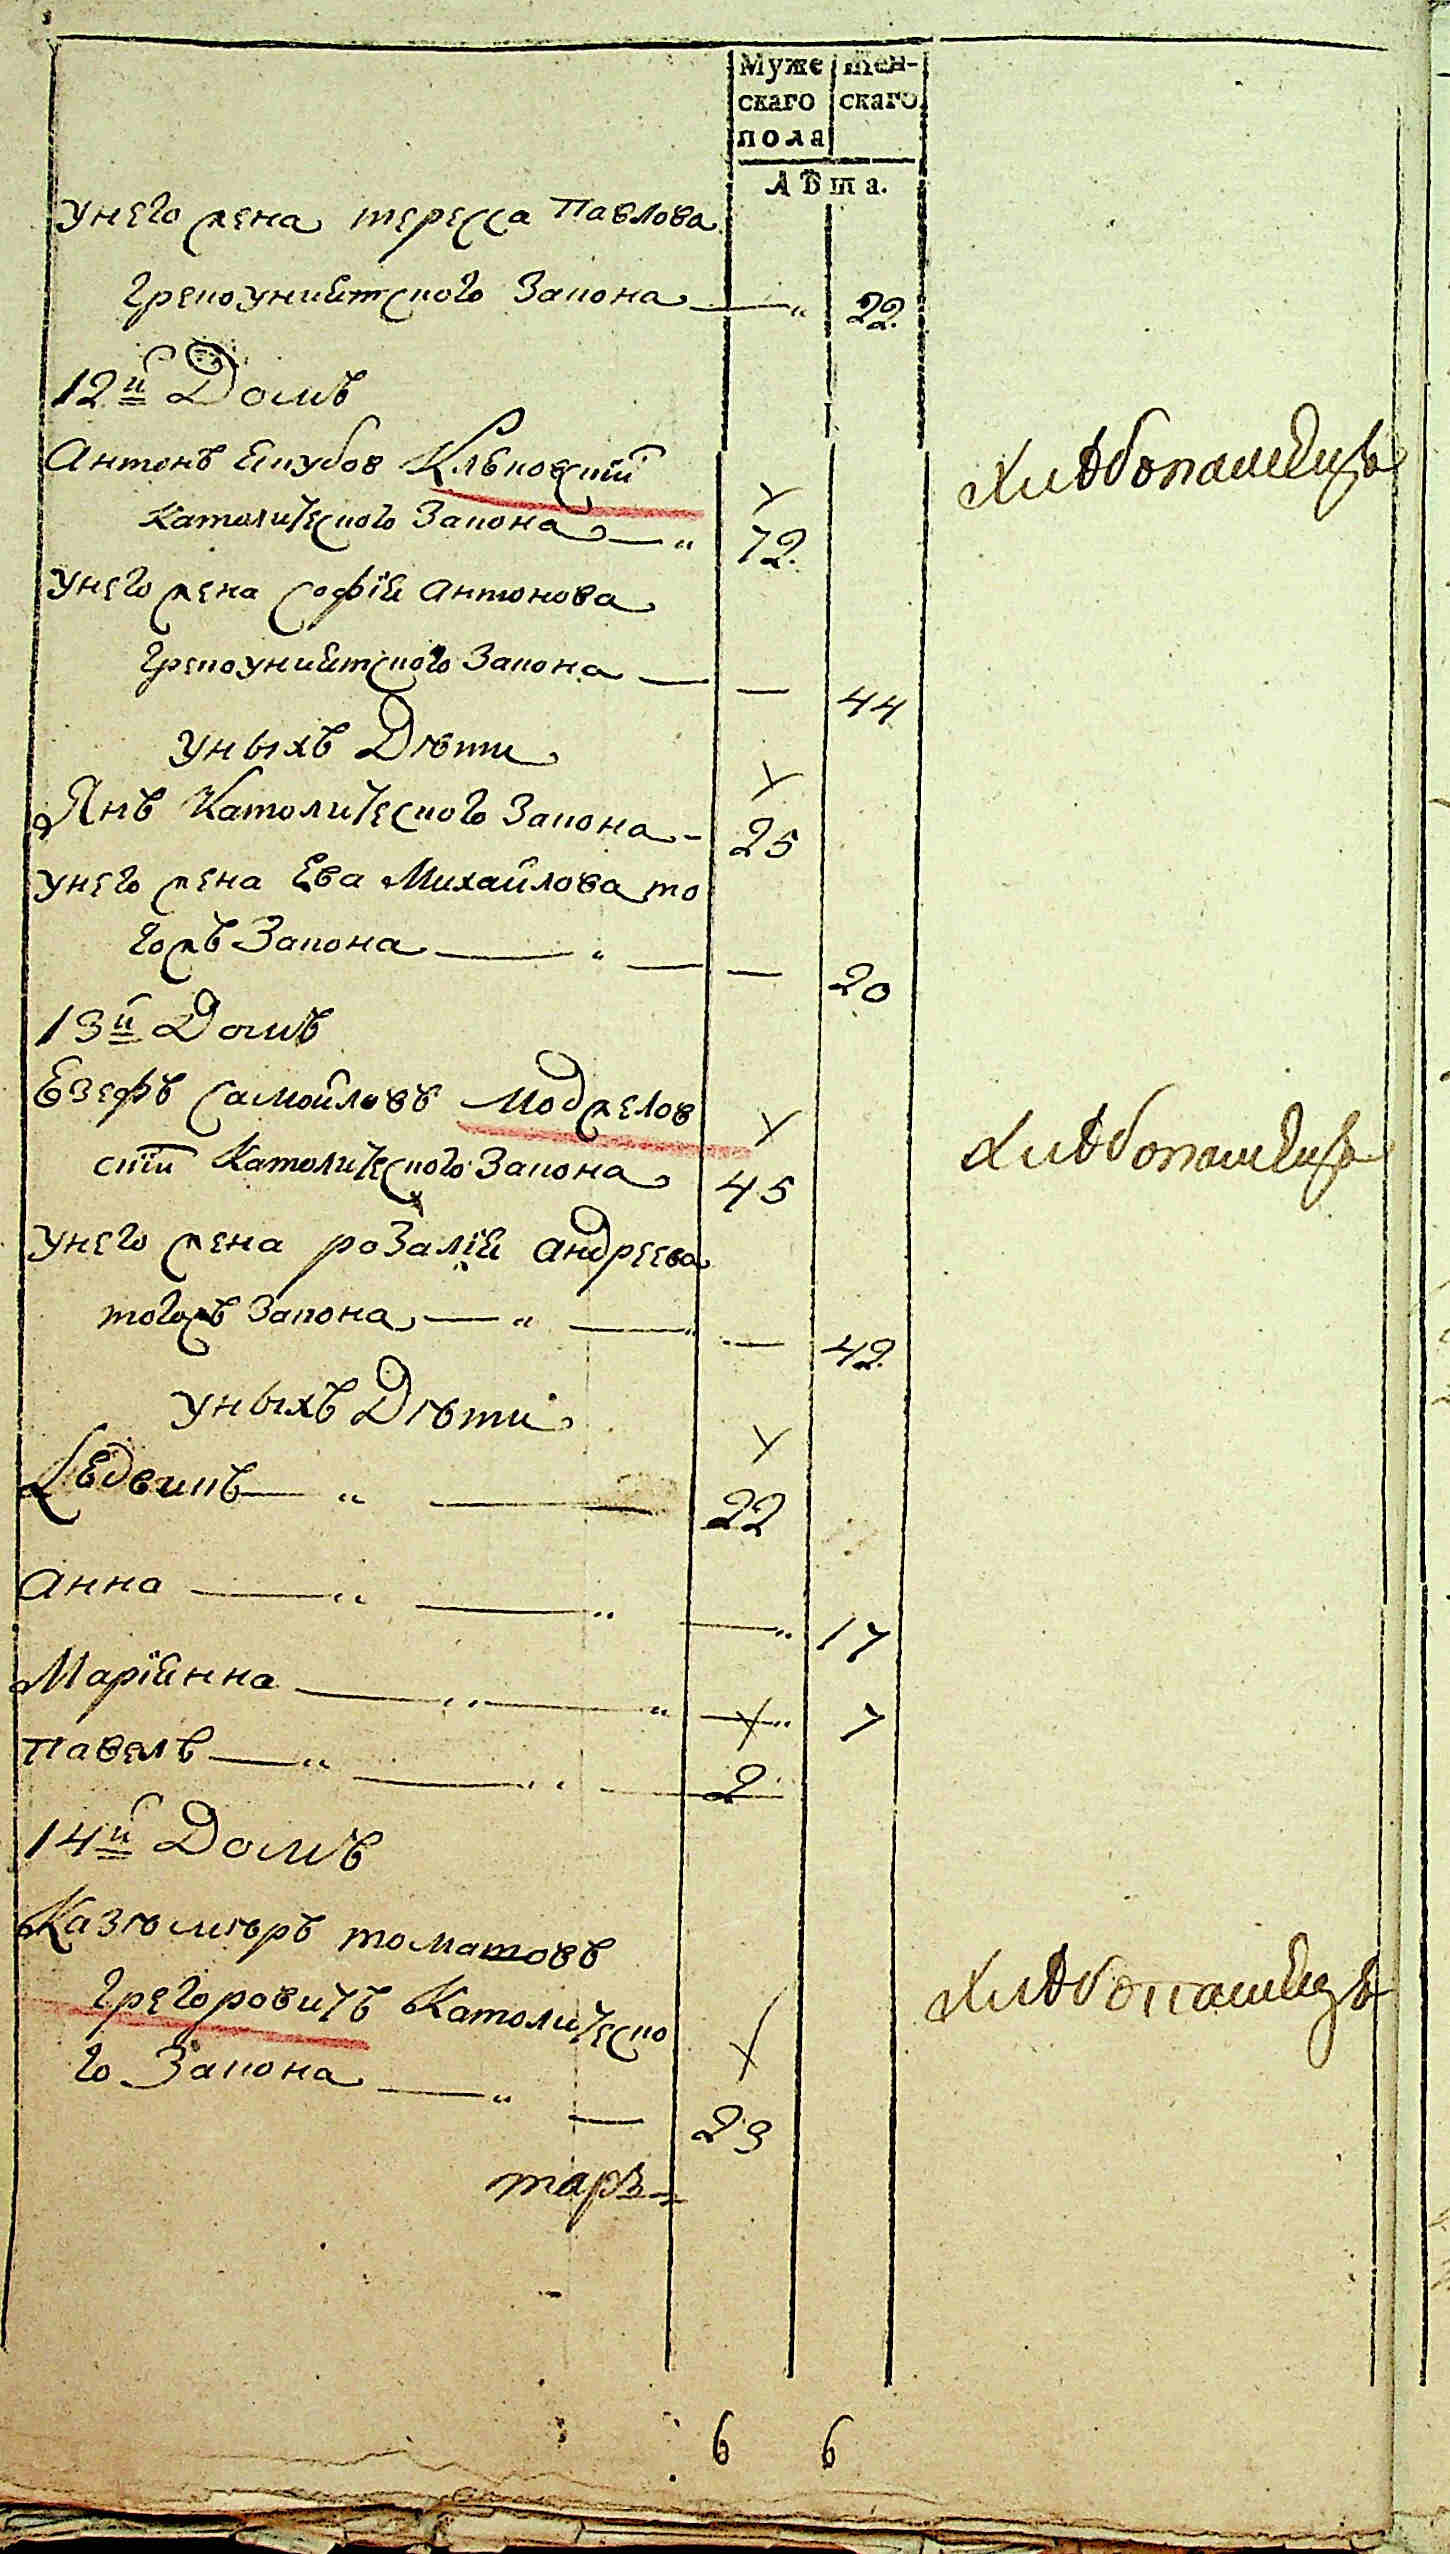 Муже
скаго
пола
Жен-
скаго
Лѣта.
унего жена тересса Павлова
грекоуниятского Закона — 22.
12й Домъ
Антонъ Якубов Клѣковскій
Хлѣбопашецъ
Католическаго Закона — 72.
унего жена софія антонова
грекоуниятского Закона — — 44
уныхъ Дѣти
Янъ Католического Закона - 25
унего жена Ева Михайлова то
гожъ Закона — — — 20
13й Домъ
Езефъ самойловъ Моджелов
Хлѣбопашецъ
скій Католического Закона 45
унего жена розалія андреева
тогожъ Закона — — — 42
уныхъ Дѣти
Людвикъ — — 22
анна — — — 17
Маріянна — — — 7
Павелъ — — — 2
14й Домъ
Казѣмѣръ томашовъ
Хлѣбопашецъ
грегоровичъ Католическо
го Закона — — 23
6 6